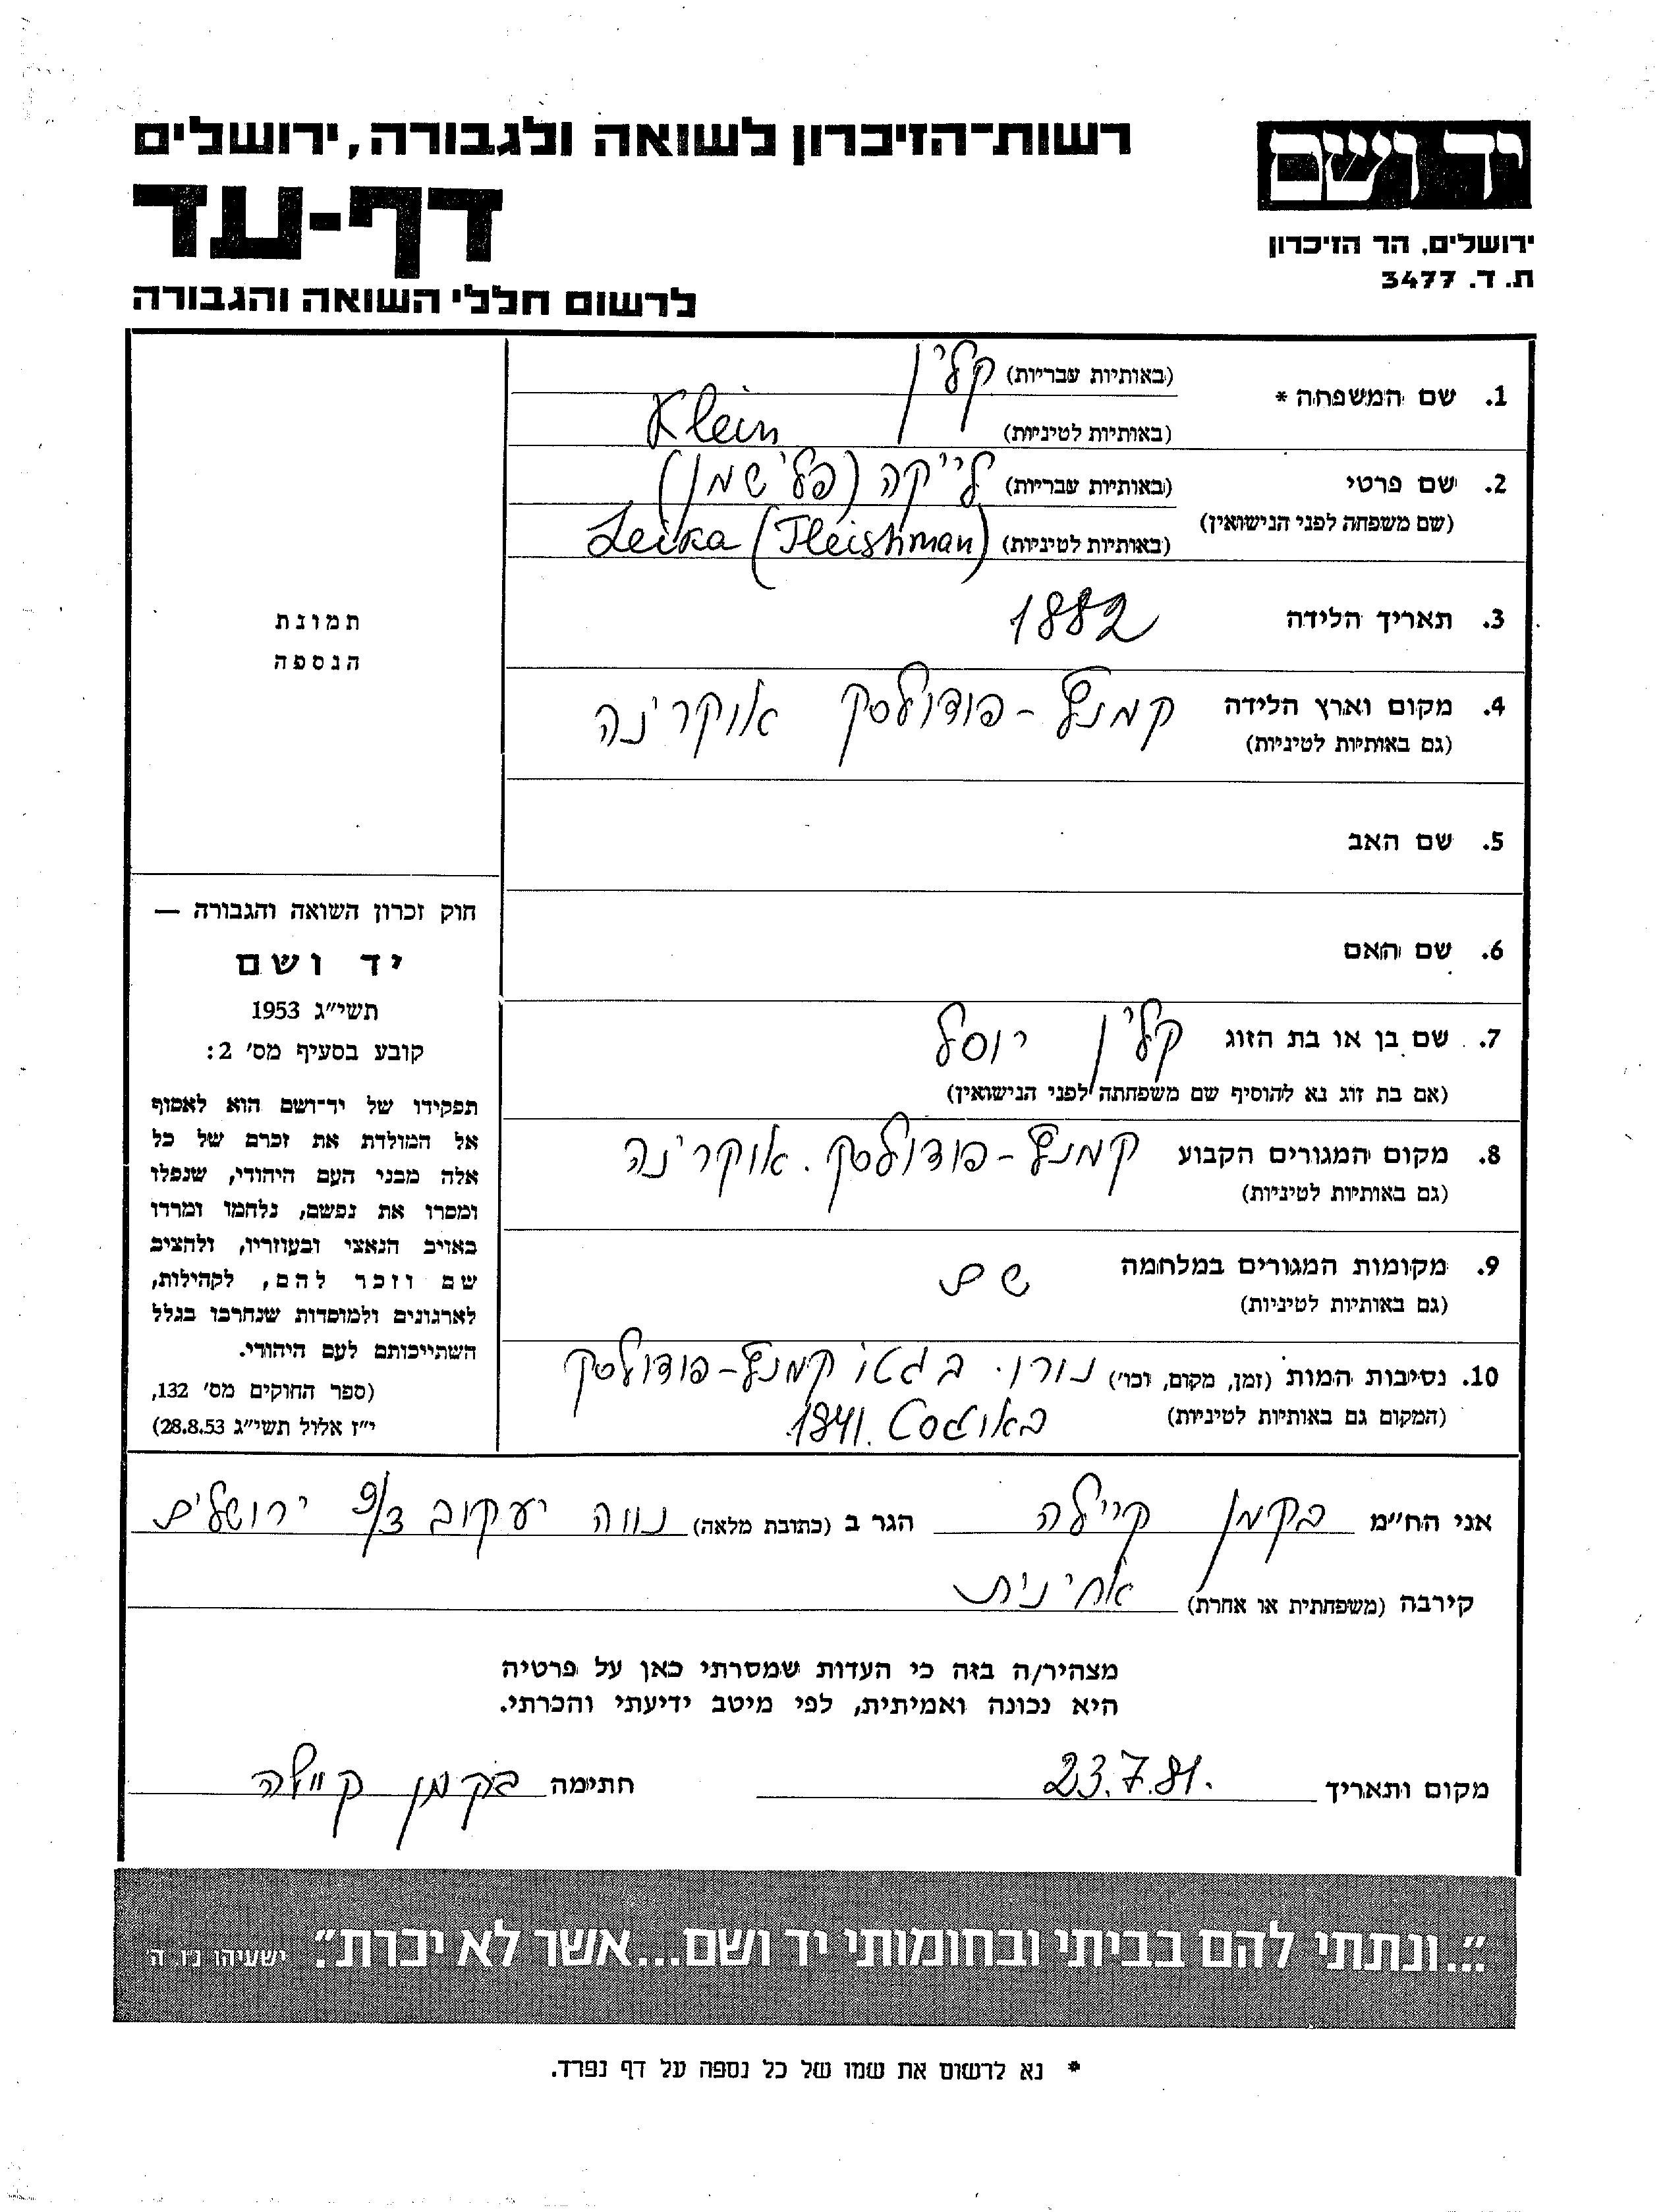 יד ושם
ירושלים, הר הזיכרון
ת. ד. 3477
רשות־הזיכרון לשואה ולגבורה, ירושלים
דף-עד
לרשום חללי השואה והגבורה
1. שם המשפחה * (באותיות עבריות) קלין
(באותיות לטיניות) Klein
2. שם פרטי (באותיות עבריות) לייקה (פלישמן)
(שם משפחה לפני הנישואין) (באותיות לטיניות) Leika (Fleishman)
3. תאריך הלידה 1882
4. מקום וארץ הלידה קמנץ-פודולסק אוקרינה
(גם באותיות לטיניות)
5. שם האב
6. שם האם
7. שם בן או בת הזוג קלין יוסל
(אם בת זוג נא להוסיף שם משפחתה לפני הנישואין)
8. מקום המגורים הקבוע קמנץ-פודולסק. אוקרינה
(גם באותיות לטיניות)
9. מקומות המגורים במלחמה שם
(גם באותיות לטיניות)
10. נסיבות המות (זמן, מקום, וכו') נורו. בגטו קמנץ-פודולסק
(המקום גם באותיות לטיניות) באוגוסט 1941.
תמונת
הנספה
חוק זכרון השואה והגבורה —
יד ושם
תשי"ג 1953
קובע בסעיף מס' 2:
תפקידו של יד־ושם הוא לאסוף
אל המולדת את זכרם של כל
אלה מבני העם היהודי, שנפלו
ומסרו את נפשם, נלחמו ומרדו
באויב הנאצי ובעוזריו, ולהציב
שם וזכר להם, לקהילות,
לארגונים ולמוסדות שנחרבו בגלל
השתייכותם לעם היהודי.
(ספר החוקים מס' 132,
י"ז אלול תשי"ג 28.8.53)
אני הח"מ בקמן קיילה הגר ב (כתובת מלאה) נווה יעקוב 3/9 ירושלים
קירבה (משפחתית או אחרת) אחינית
מצהיר/ה בזה כי העדות שמסרתי כאן על פרטיה
היא נכונה ואמיתית, לפי מיטב ידיעתי והכרתי.
מקום ותאריך 23.7.81. חתימה בקמן קיילה
"...ונתתי להם בביתי ובחומותי יד ושם...אשר לא יכרת". ישעיהו נ"ו, ה'
* נא לרשום את שמו של כל נספה על דף נפרד.